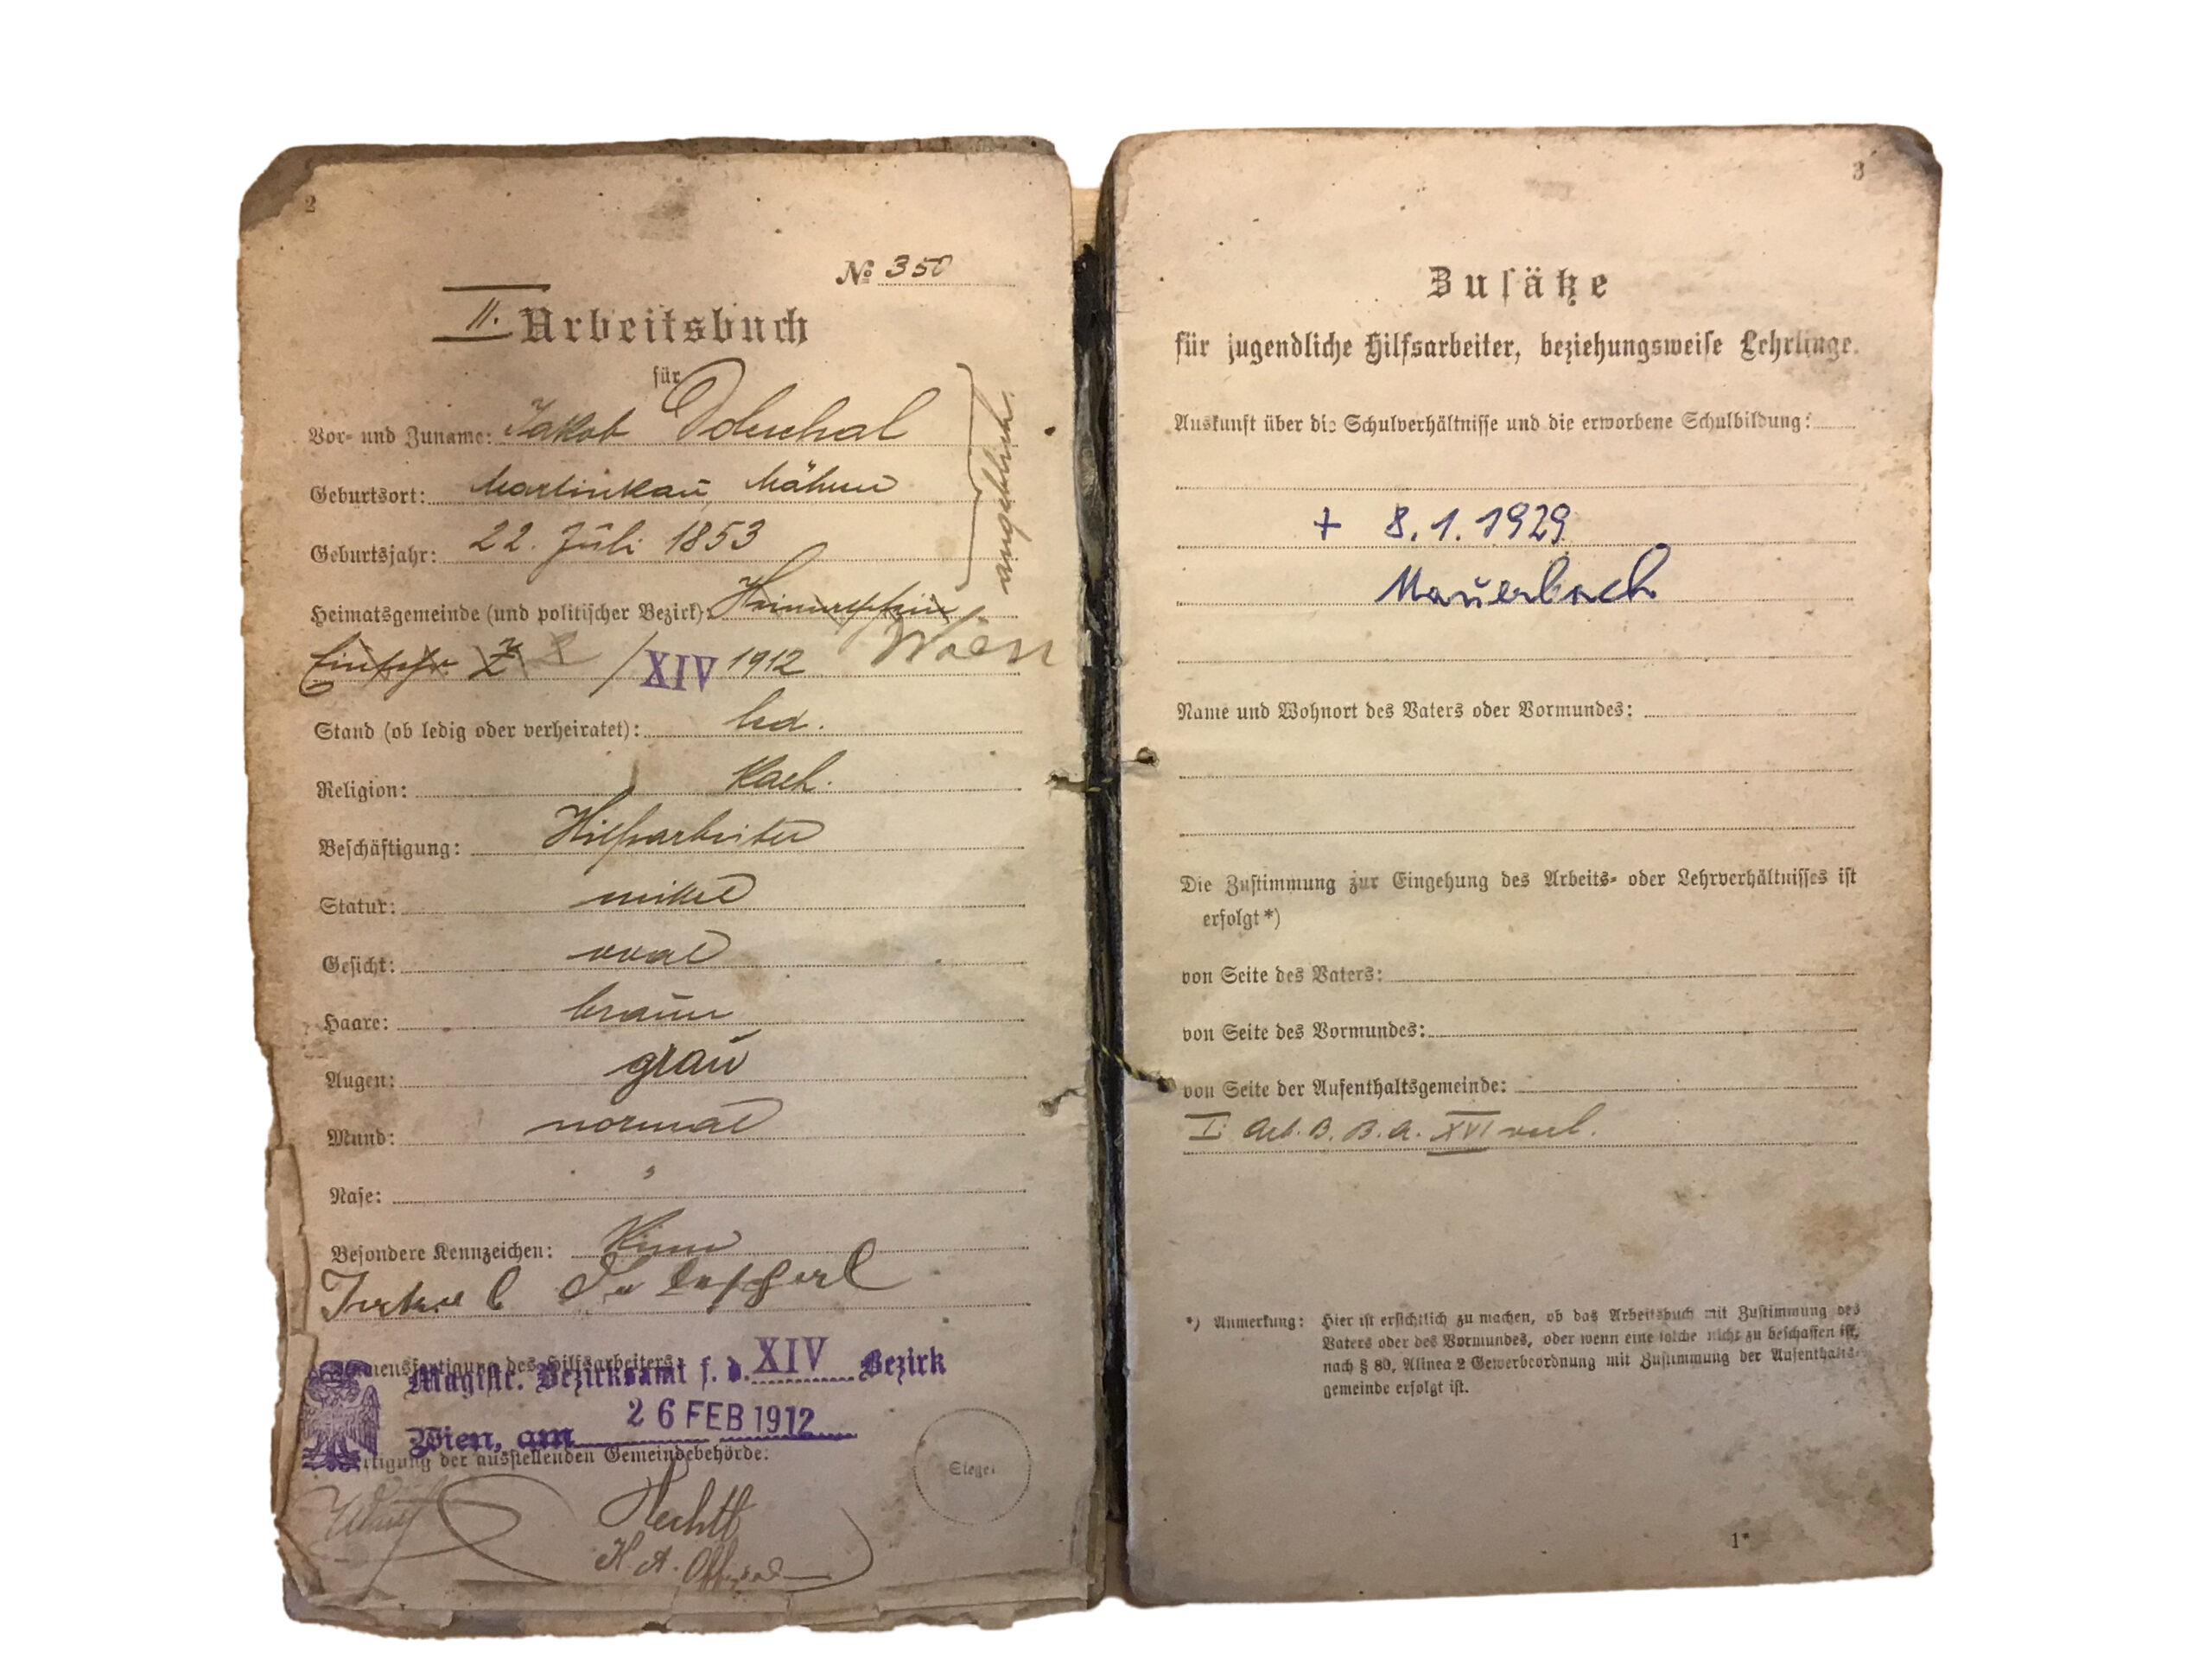 2
№ 350
II. Arbeitsbuch
für
Vor- und Zuname: Jakob Doleschal
Geburtsort: Martinkau Mähren
Geburtsjahr: 22. Juli 1853
angeblich
Heimatsgemeinde (und politischer Bezirk):
/ XIV 1912 Wien
Stand (ob ledig oder verheiratet): led.
Religion: kath.
Beschäftigung: Hilfsarbeiter
Statur: mittel
Gesicht: oval
Haare: braun
Augen: grau
Mund: normal
Nase: "
Besondere Kennzeichen: Keine
Jakob
Namensfertigung des Hilfsarbeiters.
Magistr. Bezirksamt f. d. XIV Bezirk
Wien, am 26 FEB 1912
Fertigung der ausstellenden Gemeindebehörde:
Siegel
3
Zusätze
für jugendliche Hilfsarbeiter, beziehungsweise Lehrlinge.
Auskunft über die Schulverhältnisse und die erworbene Schulbildung:
+ 8.1.1929
Mauerbach
Name und Wohnort des Vaters oder Vormundes:
Die Zustimmung zur Eingehung des Arbeits- oder Lehrverhältnisses ist
erfolgt*)
von Seite des Vaters:
von Seite des Vormundes:
von Seite der Aufenthaltsgemeinde:
I. Arb. B. B. A. XVI verl.
*) Anmerkung: Hier ist ersichtlich zu machen, ob das Arbeitsbuch mit Zustimmung des
Vaters oder des Vormundes, oder wenn eine solche nicht zu beschaffen ist,
nach § 80, Alinea 2 Gewerbeordnung mit Zustimmung der Aufenthalts-
gemeinde erfolgt ist.
1*